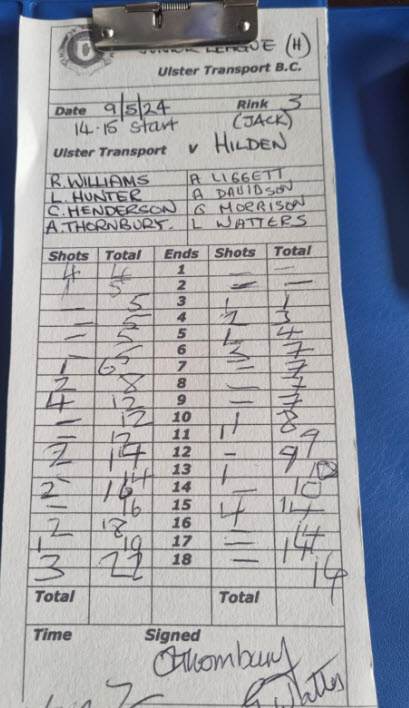 JUNIOR LEAGUE (H)
Ulster Transport B.C.
Date 9/5/24 Rink 3
14.15 start (JACK)
Ulster Transport v HILDEN
R. WILLIAMS A LIGGETT
L. HUNTER A DAVIDSON
C. HENDERSON G MORRISON
A. THORNBURY. L WATTERS
Shots Total Ends Shots Total
4 4 1 — —
1 5 2 — —
— 5 3 1 1
— 5 4 2 3
— 5 5 1 4
— 5 6 3 7
1 6 7 — 7
2 8 8 — 7
4 12 9 — 7
— 12 10 1 8
— 12 11 1 9
2 14 12 — 9
— 14 13 1 10
2 16 14 — 10
— 16 15 4 14
2 18 16 — 14
1 19 17 — 14
3 22 18 — 14
Total Total
Time Signed
AThornbury
L Watters